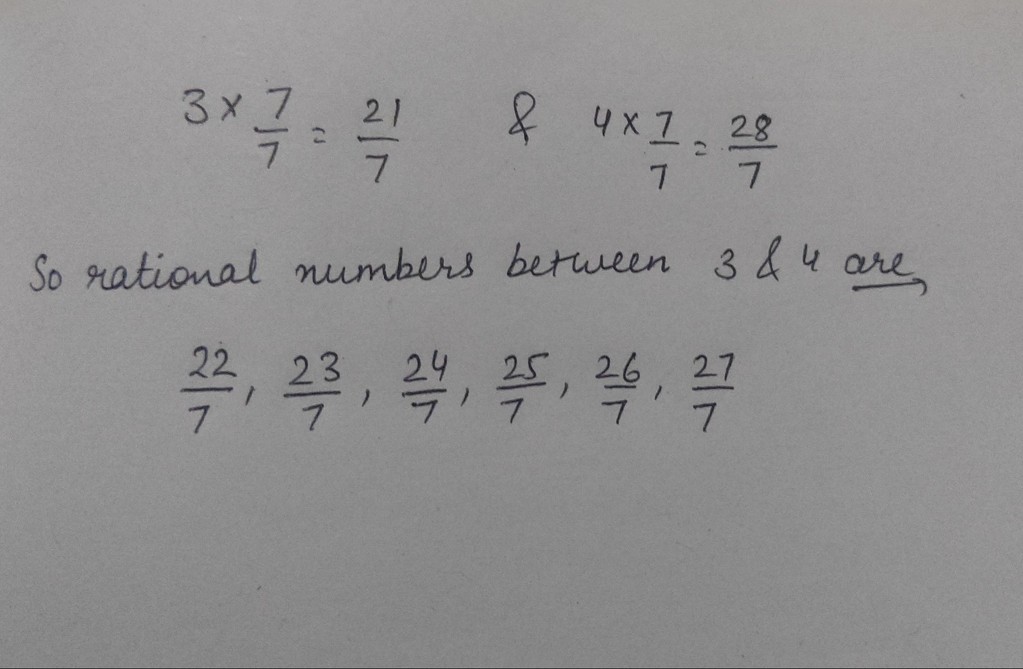 3 × 7/7 = 21/7 & 4 × 7/7 = 28/7
So rational numbers between 3 & 4 are,
22/7, 23/7, 24/7, 25/7, 26/7, 27/7